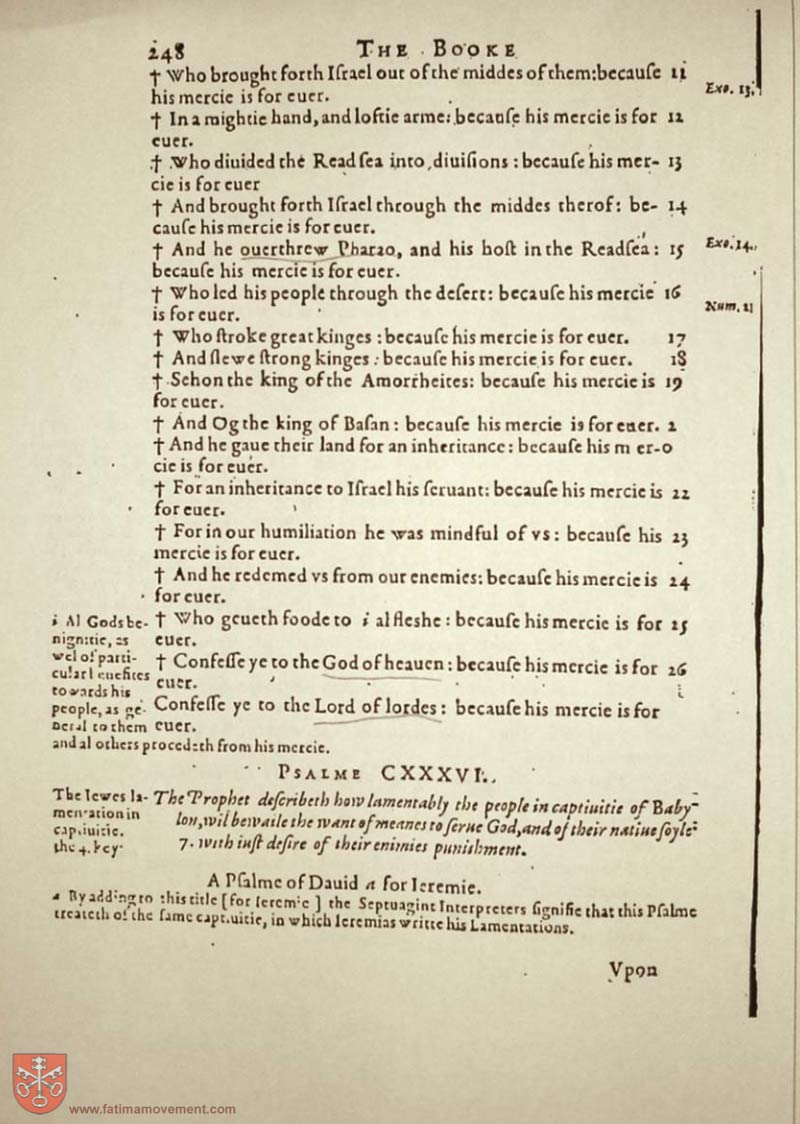 248 THE BOOKE
† Who brought forth Iſrael out of the middes of them: becauſe 11
his mercie is for euer.
Exo. 13.
† In a mightie hand, and loftie arme: becauſe his mercie is for 12
euer.
† Who diuided the Read ſea into diuiſions : becauſe his mer- 13
cie is for euer
† And brought forth Iſrael through the middes therof: be- 14
cauſe his mercie is for euer.
† And he ouerthrew Pharao, and his hoſt in the Readſea : 15
Exo. 14.
becauſe his mercie is for euer.
† Who led his people through the deſert: becauſe his mercie 16
is for euer.
Num. 21
† Who ſtroke great kinges : becauſe his mercie is for euer. 17
† And ſlewe ſtrong kinges : becauſe his mercie is for euer. 18
† Sehon the king of the Amorrheites: becauſe his mercie is 19
for euer.
† And Og the king of Baſan : becauſe his mercie is for euer. 2
† And he gaue their land for an inheritance : becauſe his m er-0
cie is for euer.
† For an inheritance to Iſrael his ſeruant: becauſe his mercie is 22
for euer.
† For in our humiliation he was mindful of vs : becauſe his 23
mercie is for euer.
† And he redemed vs from our enemies: becauſe his mercie is 24
for euer.
† Who geueth foode to i al fleshe : becauſe his mercie is for 25
euer.
† Confeſſe ye to the God of heauen : becauſe his mercie is for 26
euer.
Confeſſe ye to the Lord of lordes : becauſe his mercie is for
euer.
i Al Gods be-
nignitie, as
wel of parti-
cular benefites
towards his
people, as ge-
neral to them
and al others procedeth from his mercie.
PSALME CXXXVI.
The Iewes la-
mentation in
captiuitie.
the 4. key.
The Prophet deſcribeth how lamentably the people in captiuitie of Baby-
lon, wil bewaile the want of meanes to ſerue God, and of their natiue ſoyle:
7. with iuſt deſire of their enimies punishment.
A Pſalme of Dauid a for Ieremie.
a By adding to this title [for Ieremie] the Septuagint Interpreters ſignifie that this Pſalme
treateth of the ſame captiuitie, in which Ieremias writte his Lamentations.
Vpon
www.fatimamovement.com